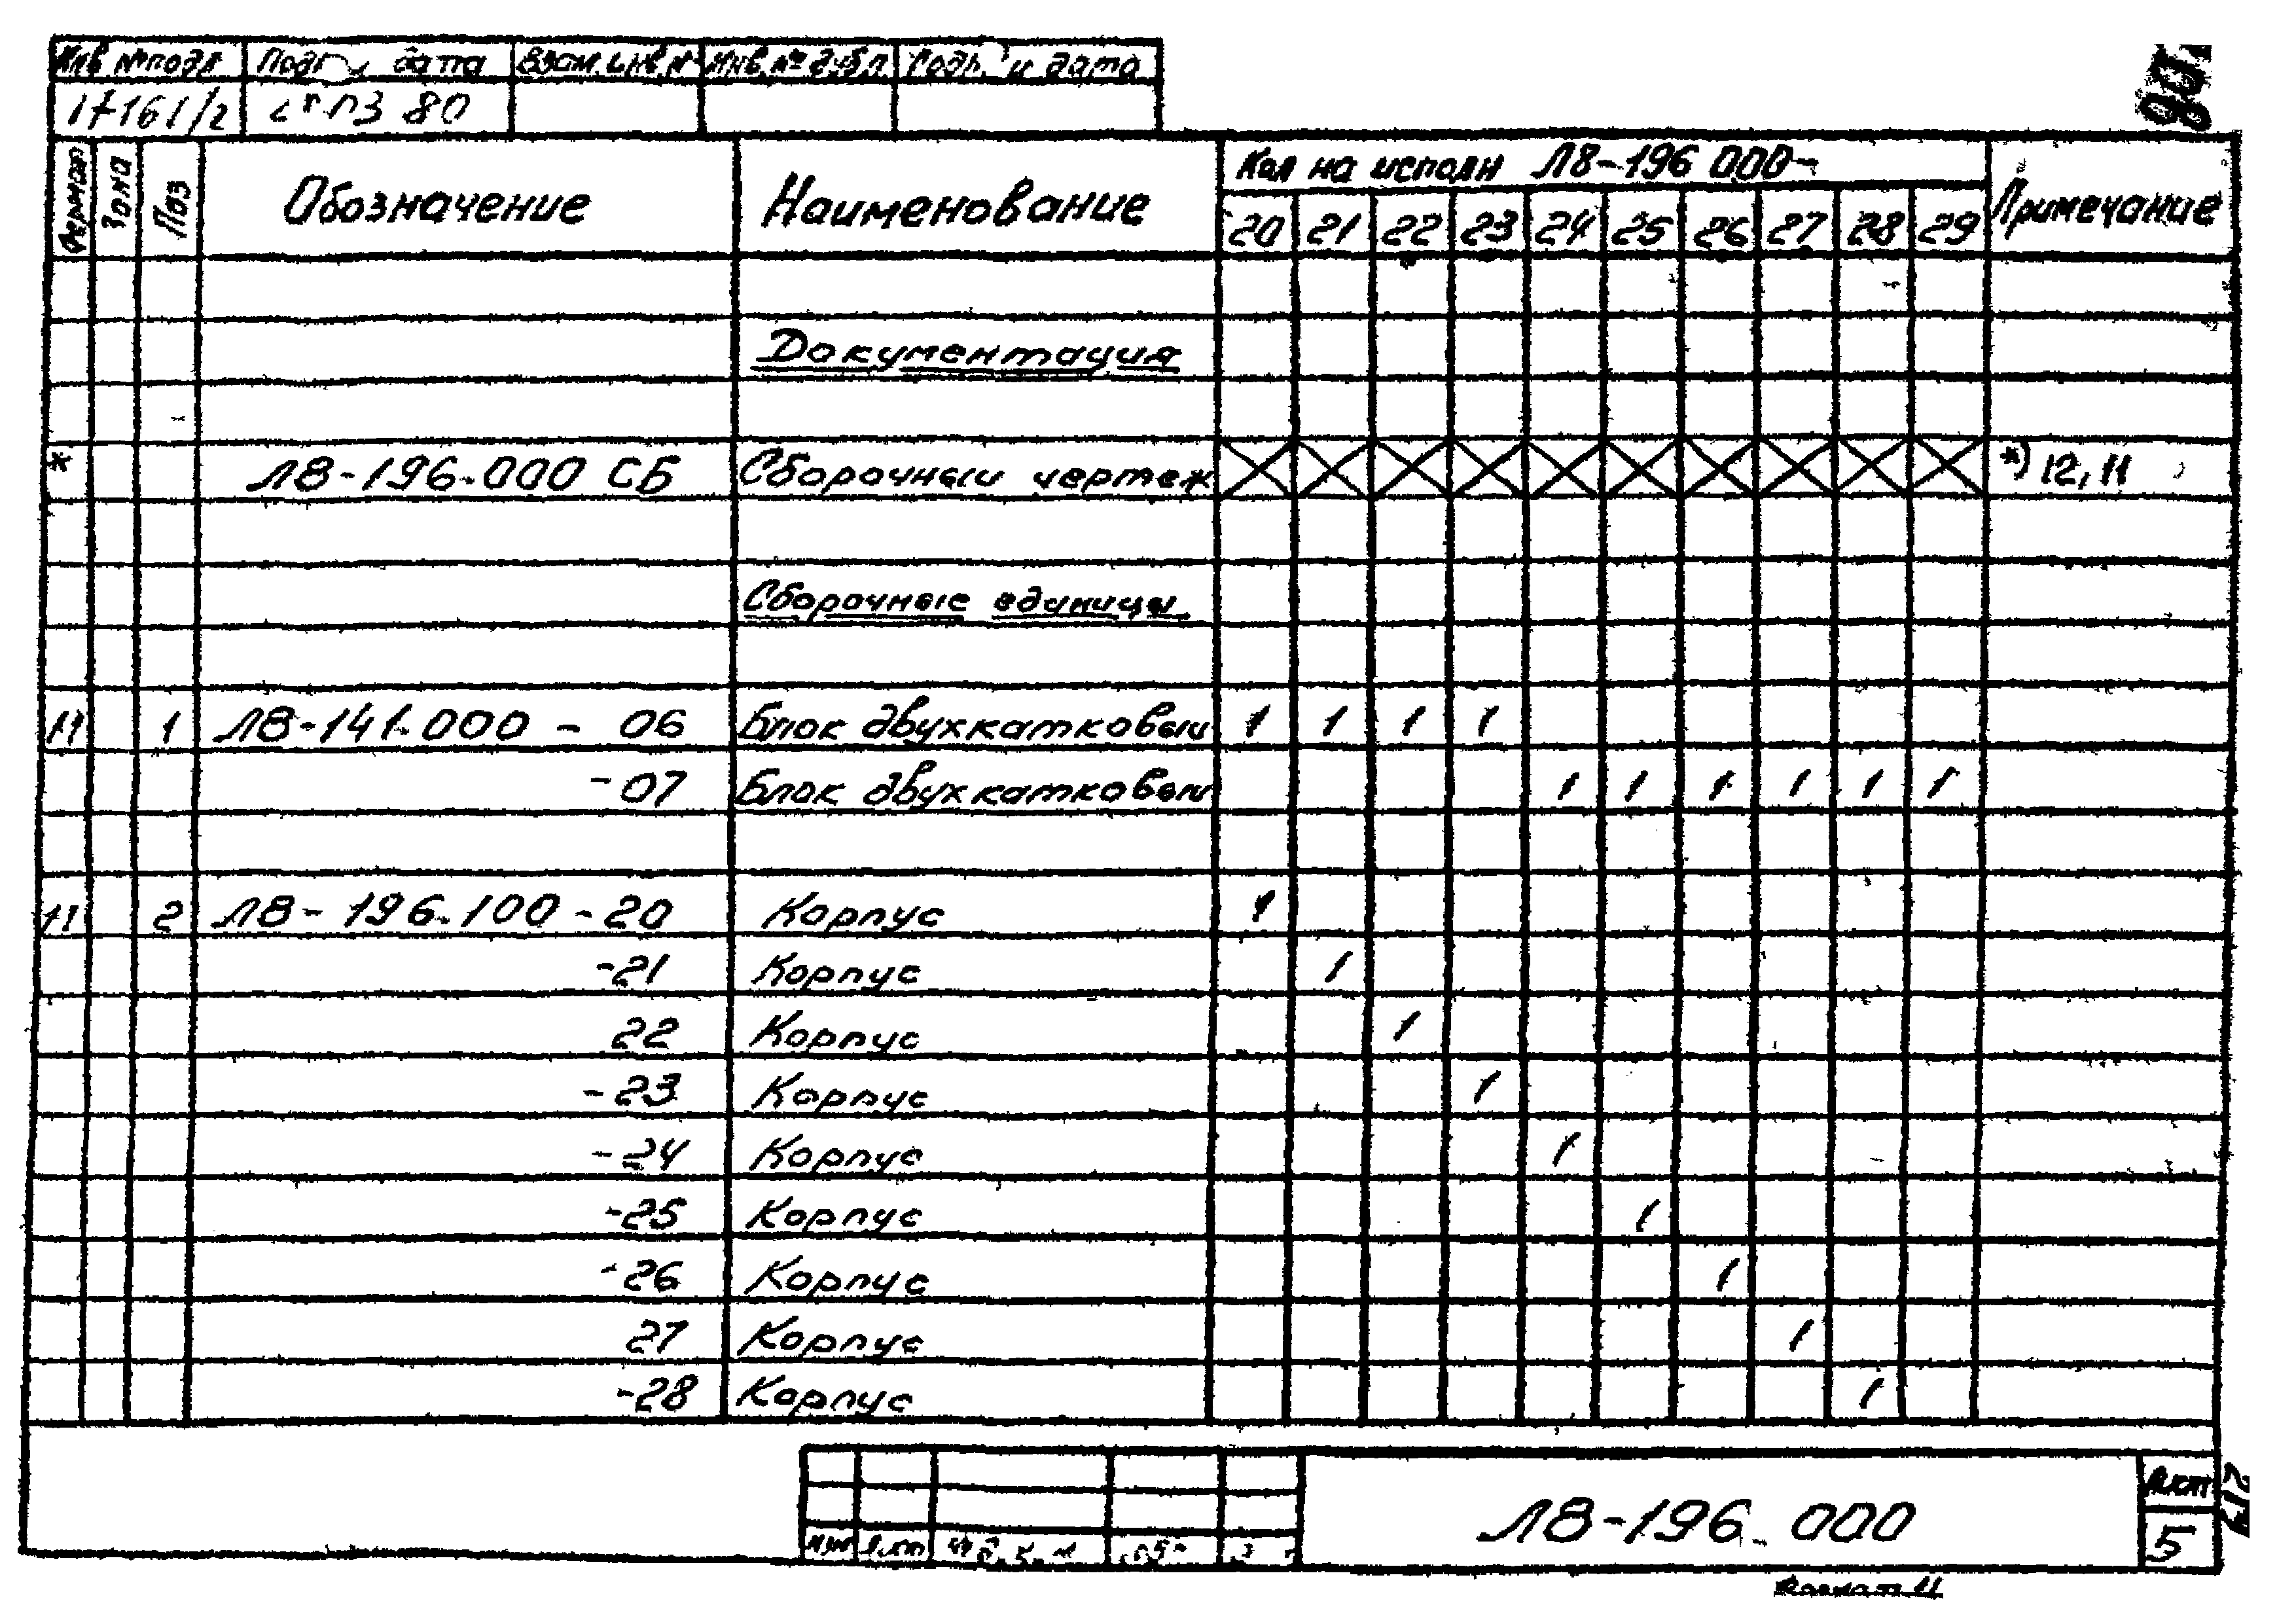 Инв № подл Подп и дата Взам. инв № Инв № дубл Подп. и дата
17161/2 80
Формат Зона Поз Обозначение Наименование Кол на исполн Л8-196 000- Примечание
20 21 22 23 24 25 26 27 28 29
Документация
* Л8-196.000 СБ Сборочный чертеж *) 12, 11
Сборочные единицы
11 1 Л8-141.000 - 06 Блок двухкатковый 1 1 1 1
-07 Блок двухкатковый 1 1 1 1 1 1
11 2 Л8-196.100-20 Корпус 1
-21 Корпус 1
22 Корпус 1
-23 Корпус 1
-24 Корпус 1
-25 Корпус 1
-26 Корпус 1
27 Корпус 1
-28 Корпус 1
Л8-196.000
Лист
5
Изм Лист
Формат 11